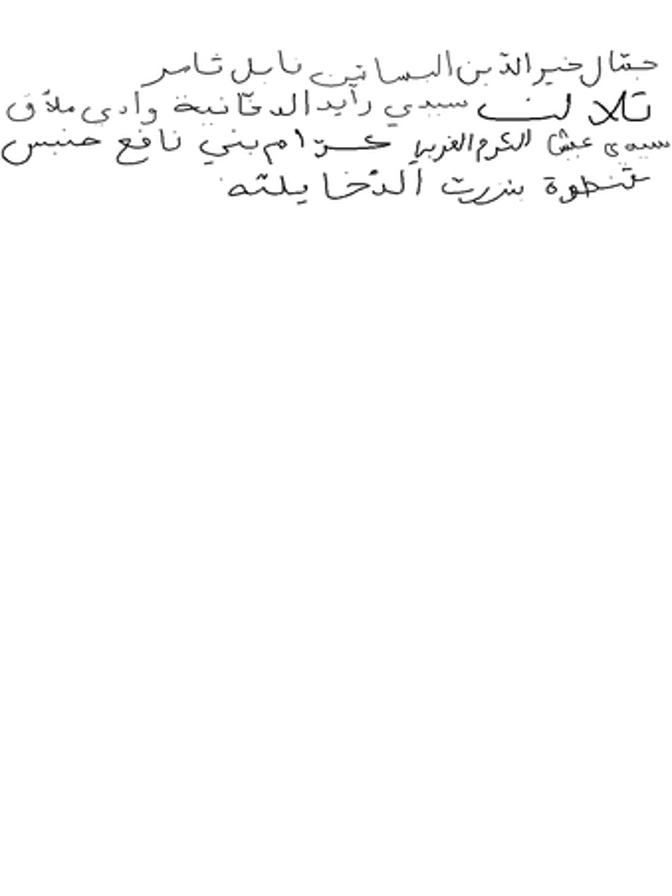 جمّال خير الدّين البساتين نابل ثامر
تلالت سيدي رايد الدخّانية وادي ملاّق
سيدي عيش الكرم الغربي كرّام بني نافع حنبس
غنطوة بنزرت الدّخايلته